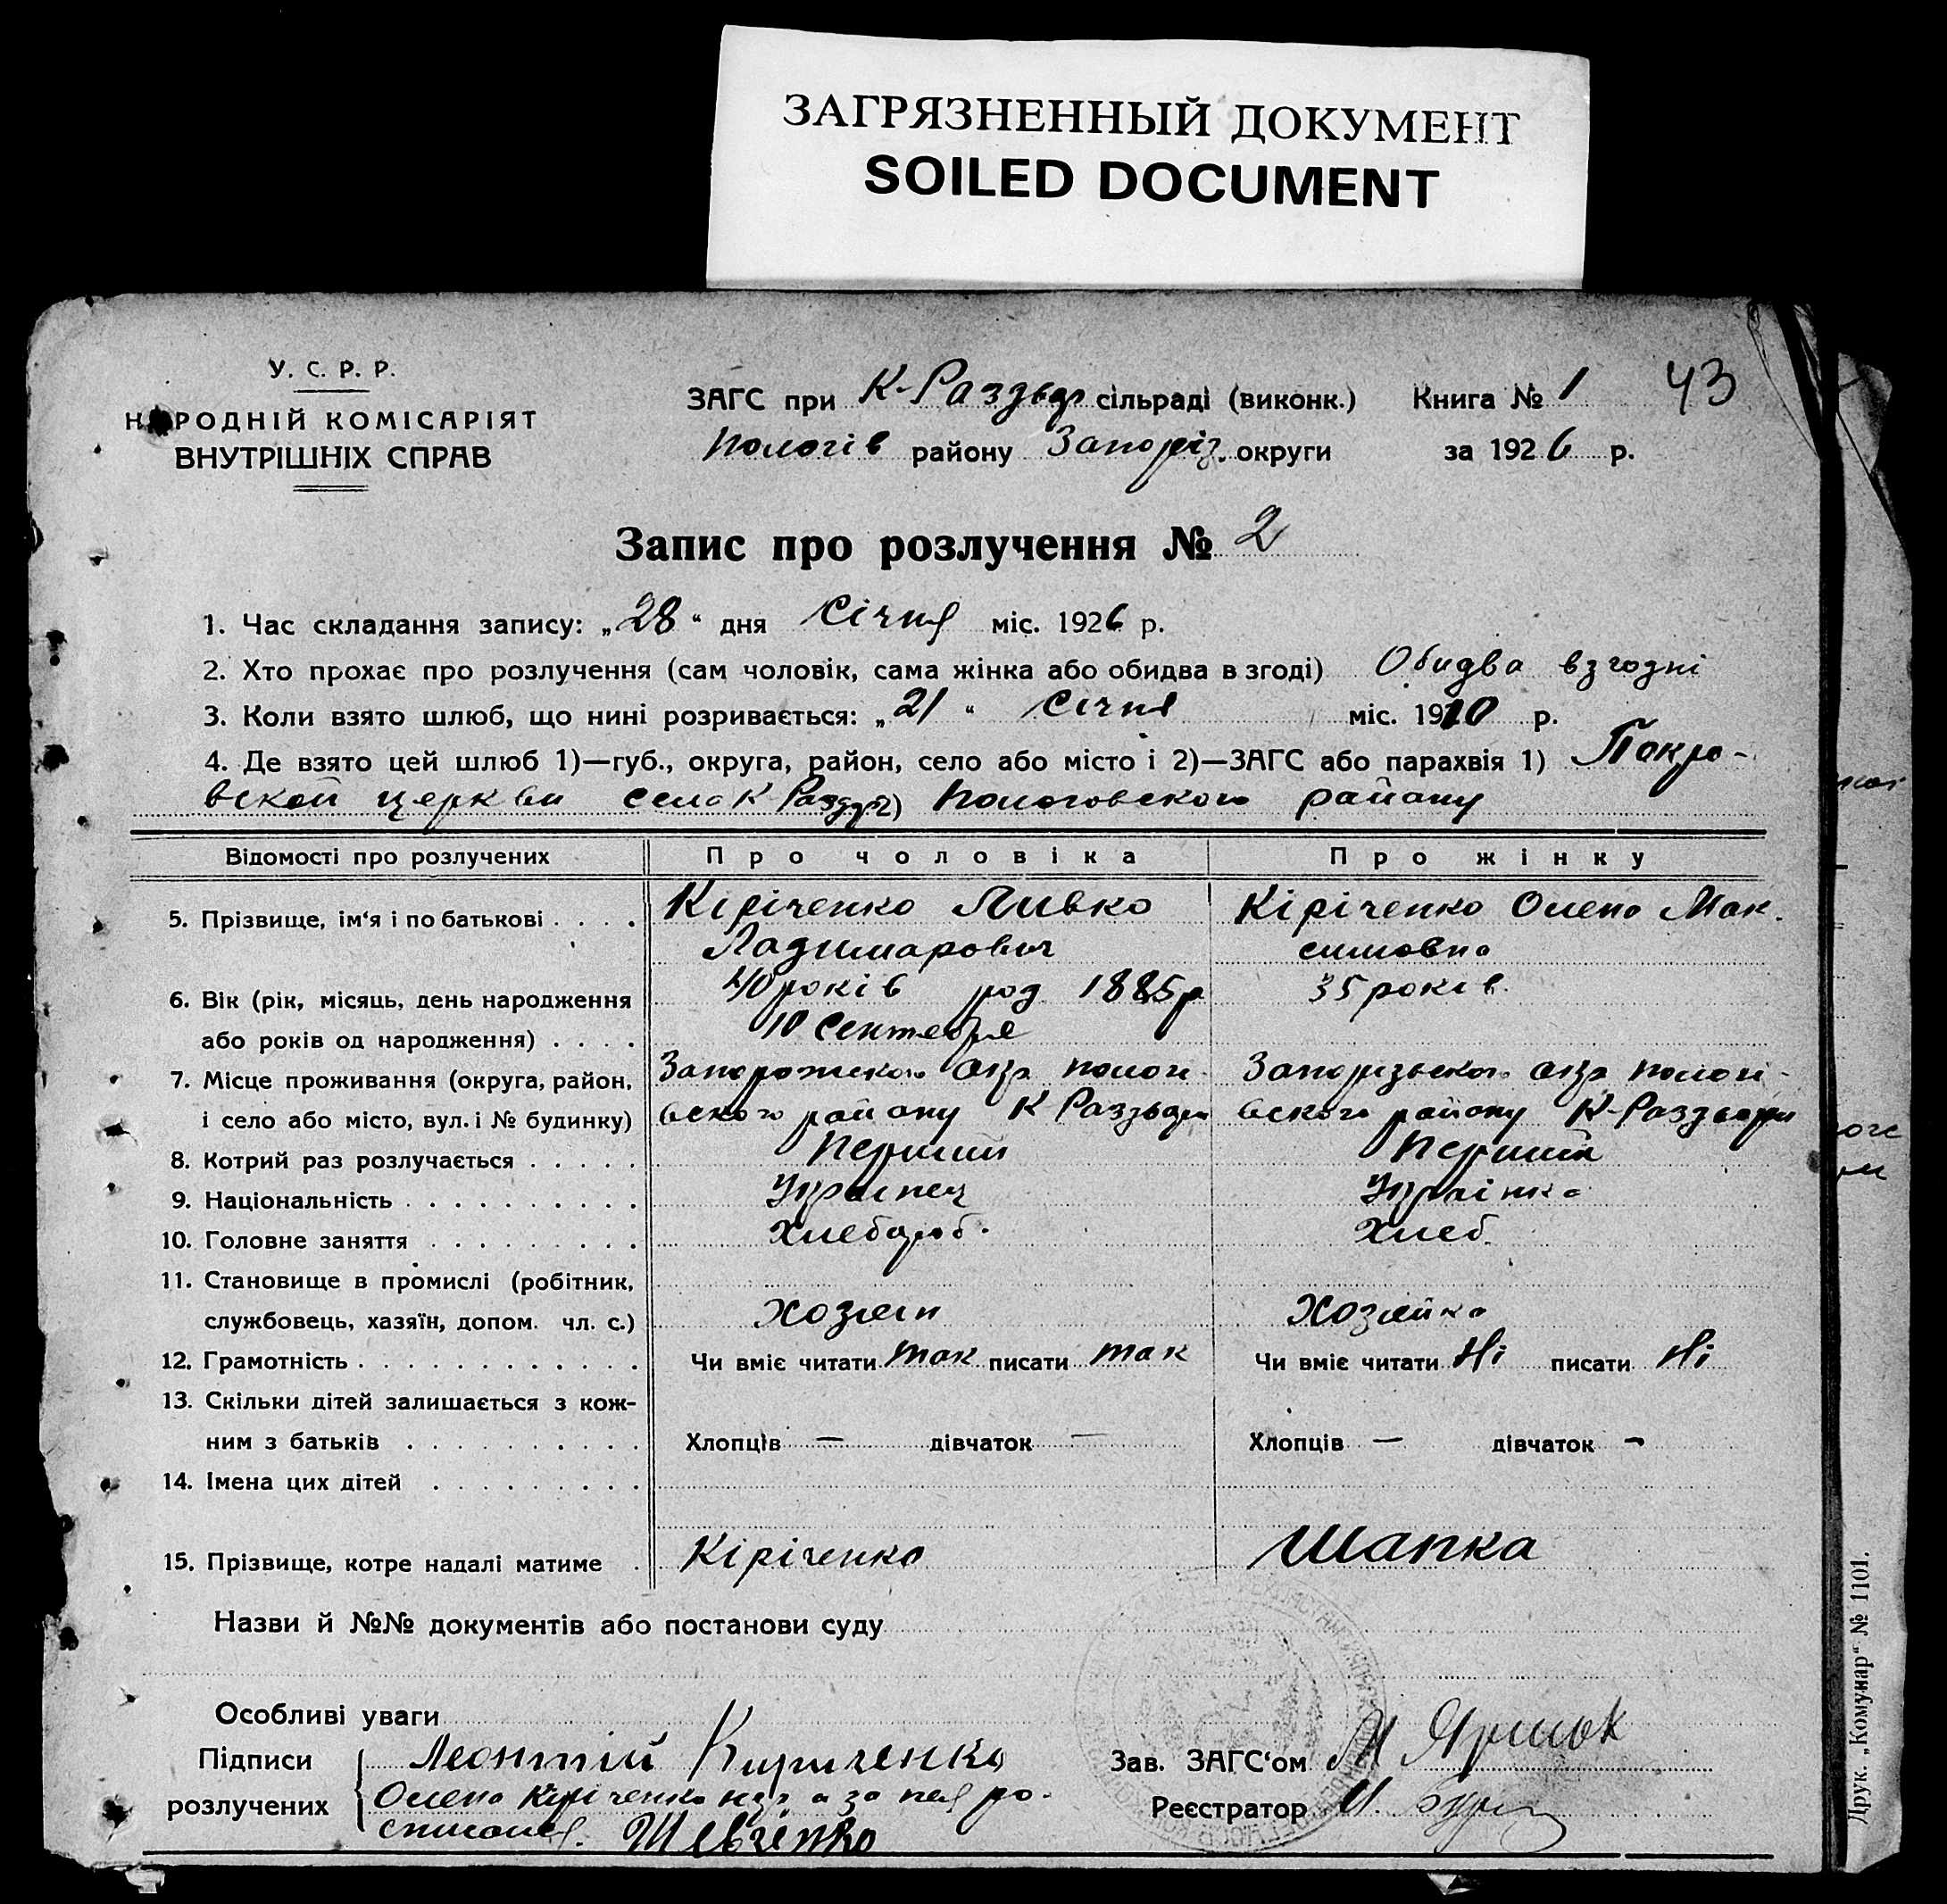 ЗАГРЯЗНЕННЫЙ ДОКУМЕНТ
SOILED DOCUMENT
У. С. Р. Р.
НАРОДНІЙ КОМІСАРІЯТ
ВНУТРІШНІХ СПРАВ
ЗАГС при К-Раздор сільраді (виконк.) Книга № 1 43
Пологів району Запоріз. округи за 1926 р.
Запис про розлучення № 2
1. Час складання запису: „28“ дня Січня міс. 1926 р.
2. Хто прохає про розлучення (сам чоловік, сама жінка або обидва в згоді) Обидва взгодні
3. Коли взято шлюб, що нині розривається: „21“ Січня міс. 1910 р.
4. Де взято цей шлюб 1)—губ., округа, район, село або місто і 2)—ЗАГС або парахвія 1) Покро-
вской церкви село К Раздор 2) Пологовского району
Відомості про розлучених Про чоловіка Про жінку
5. Прізвище, ім'я і по батькові . . . . Кіріченко Ливко Кіріченко Олена Мак.
Ладимарович симовна
6. Вік (рік, місяць, день народження 40 років род 1885 р 35 років.
або років од народження) . . . . 10 Сентября
7. Місце проживання (округа, район, Запорожского окр. Полог. Запорізького окр. Полог-
і село або місто, вул. і № будинку) вского району К Раздори вского району К-Раздори
8. Котрий раз розлучається . . . . . Перший Перший
9. Національність . . . . . . . . . . Українец Українка
10. Головне заняття . . . . . . . . . Хлебороб. Хлеб.
11. Становище в промислі (робітник,
службовець, хазяїн, допом. чл. с.) Хозяін Хозяйка
12. Грамотність . . . . . . . . . . . . Чи вміє читати так писати так Чи вміє читати Ні писати Ні
13. Скільки дітей залишається з кож-
ним з батьків . . . . . . . . . . Хлопців — дівчаток — Хлопців — дівчаток —
14. Імена цих дітей . . . . . . . . .
15. Прізвище, котре надалі матиме . Кіріченко Шапка
Назви й №№ документів або постанови суду
Особливі уваги
Підписи розлучених
Леонтій Кириченко
Олена Кіріченко а за нея ро-
списался. Шевченко
Зав. ЗАГС'ом М
Реєстратор И.
Друк. „Комунар“ № 1101.